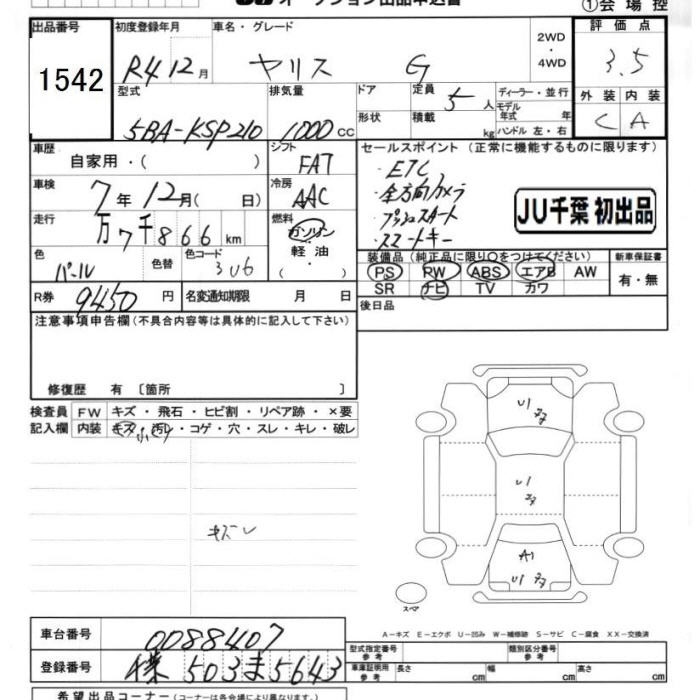 ①会場控
出品番号 初度登録年月 車名・グレード 2WD ・ 4WD 評価点
1542 R4 12月 ヤリス G 3.5
型式 排気量 ドア 定員 5人 ディーラー・並行 外装 内装
5BA-KSP210 1000cc 形状 積載 kg モデル年式 年 ハンドル 左・右 C A
車歴 自家用・( ) シフト FAT セールスポイント (正常に機能するものに限ります)
車検 7年12月( 日) 冷房 AAC ・ETC
・全方向カメラ
・プッシュスタート
・スマートキー
JU千葉 初出品
走行 万7千866km 燃料 ガソリン・軽油・
色 パール 色替 色コード 3U6
装備品 (純正品に限り○をつけてください) 新車保証書
PS PW ABS エアB AW 有・無
SR ナビ TV カワ
R券 9450円 名変通知期限 月 日 後日品
注意事項申告欄 (不具合内容等は具体的に記入して下さい)
修復歴 有 〔箇所 〕
検査員 FW キズ・飛石・ヒビ割・リペア跡・×要
記入欄 内装 キズ・汚レ・コゲ・穴・スレ・キレ・破レ
キズレ
U1
U1
A1
U1
スペア
A-キズ E-エクボ U-凹み W-補修跡 S-サビ C-腐食 XX-交換済
車台番号 0088407
登録番号 503 ま 5643
型式指定番号 参考 類別区分番号 参考
車庫証明用 参考 長さ cm 幅 cm 高さ cm
希望出品コーナー (コーナーは各会場により異なります。)